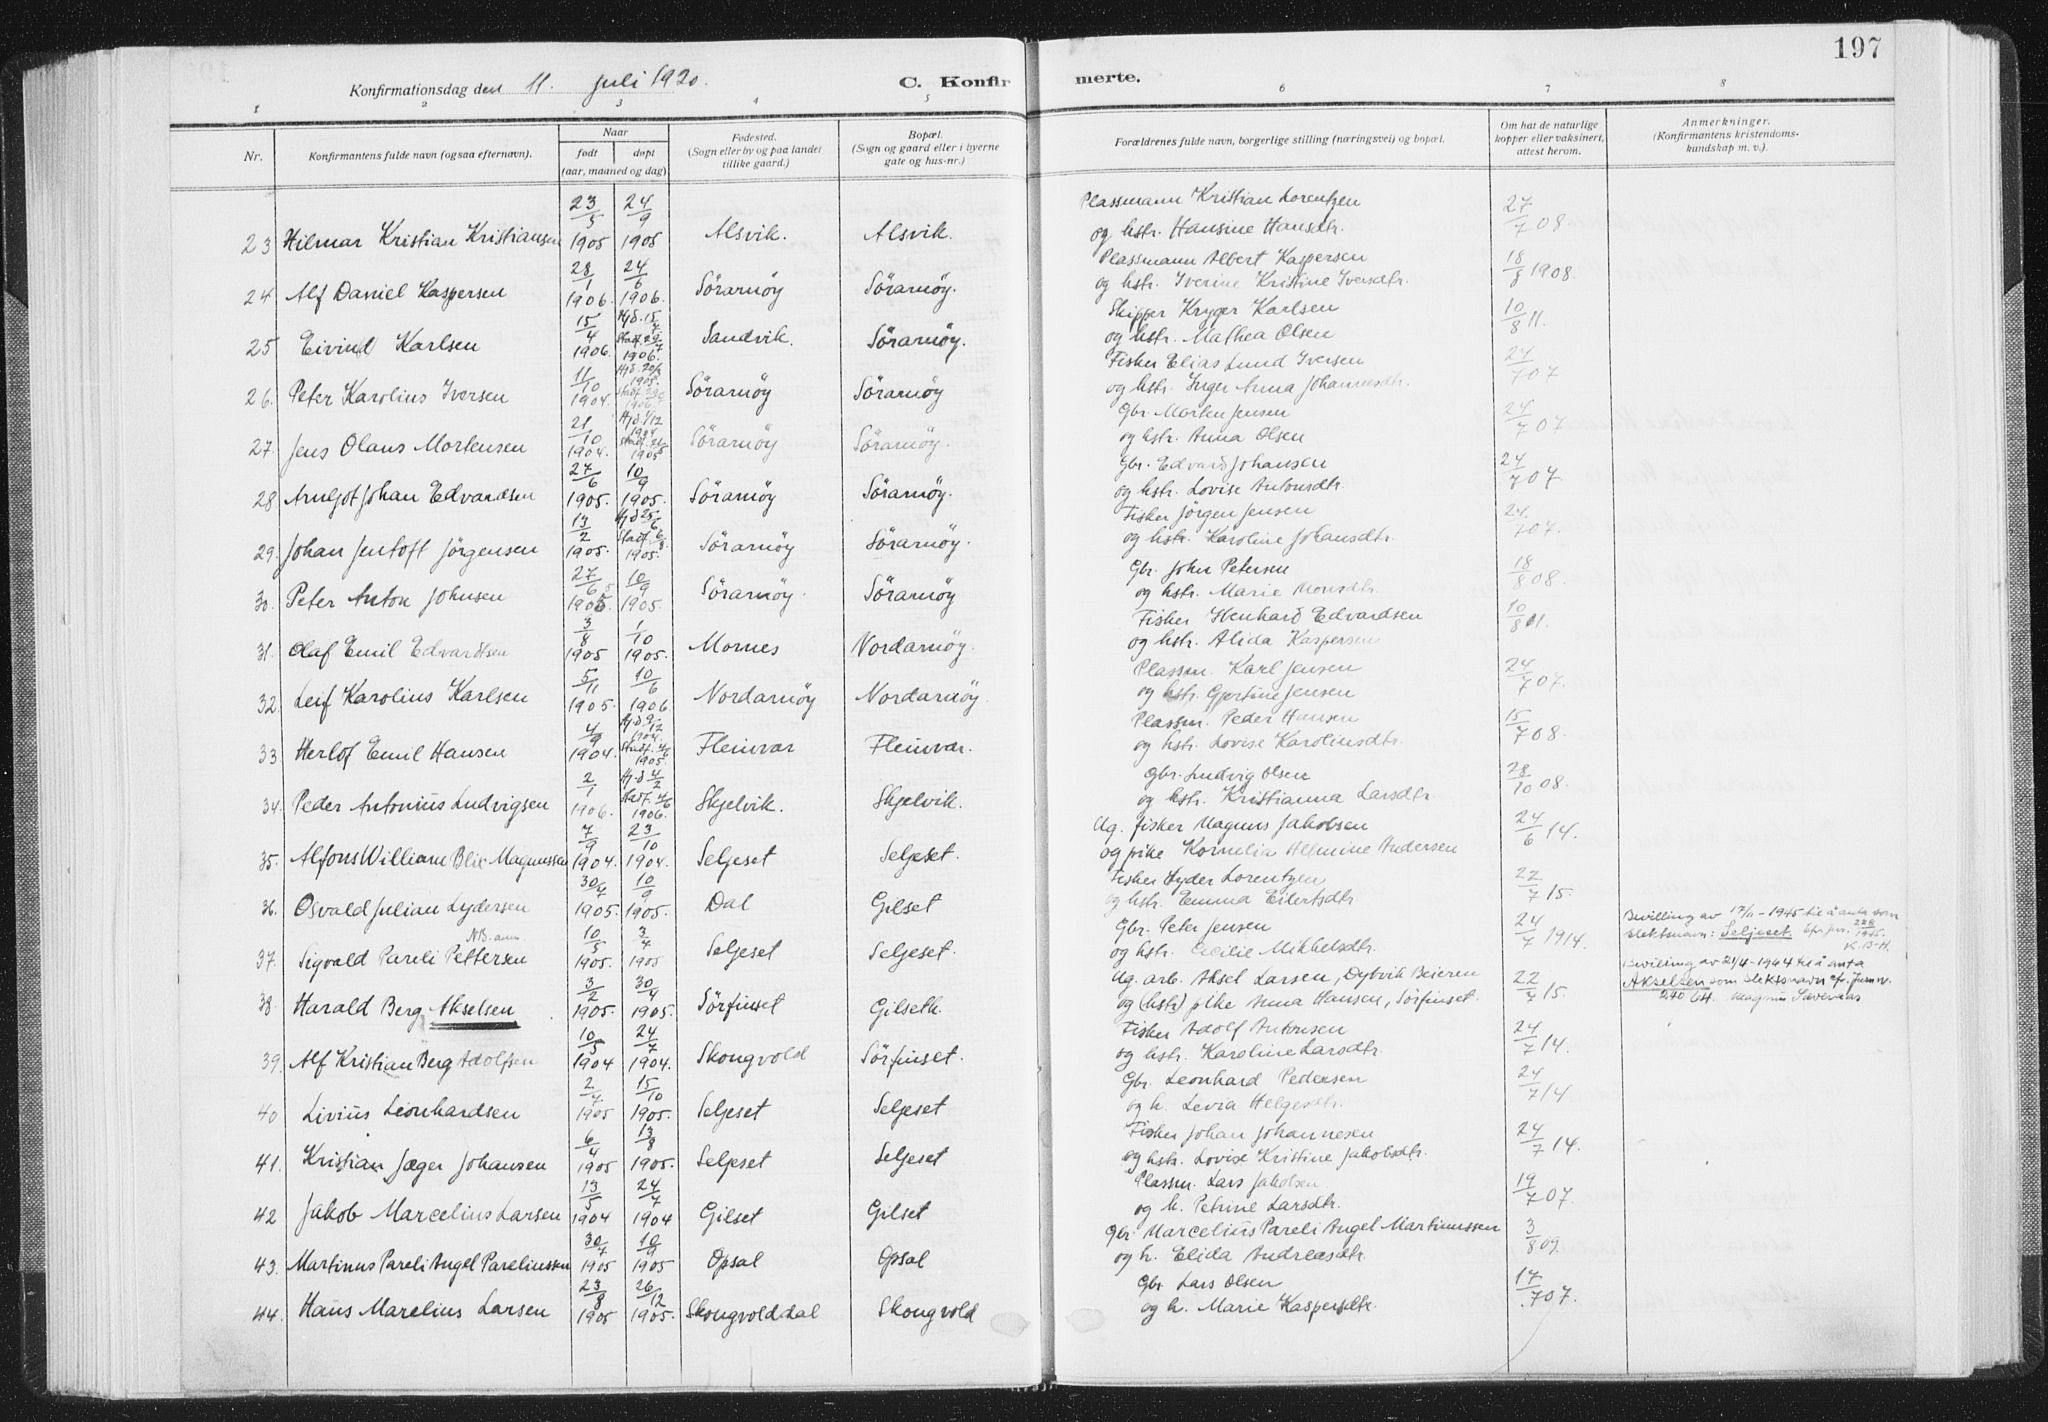 197
Konfirmationsdag den 11. juli 1920.
C. Konfirmerte.
1 2 3 4 5 6 7 8
Nr. Konfirmantens fulde navn (ogsaa efternavn). Naar født døpt (aar, maaned og dag) Fødested. (Sogn eller by og paa landet tillike gaard.) Bopæl. (Sogn og gaard eller i byerne gate og hus-nr.) Forældrenes fulde navn, borgerlige stilling (næringsvei) og bopæl. Om hat de naturlige kopper eller vaksinert, attest herom. Anmerkninger. (Konfirmantens kristendoms-kundskap m. v.).
23 Hilmar Kristian Kristiansen 23/5 1905 24/9 1905 Alsvik. Alsvik. Plassmann Kristian Lorentzen
og hstr. Hansine Hansdtr. 27/7 08.
24 Alf Daniel Kaspersen 28/1 1906. 24/6 1906. Sörarnöy Sörarnöy. Plassmann Albert Kaspersen
og hstr. Iverine Kristine Iversdtr. 18/8 1908.
25 Eivind Karlsen 15/4 1906. Hjd. 15/4 Stadf. 29/7 1906. Sandvik. Sörarnöy. Skipper Kryger Karlsen
og hstr. Mathea Olsen 10/8 11.
26. Peter Karolius Iversen 11/10 1904. Sörarnöy Sörarnöy Fisker Elias Lund Iversen
og hstr. Inger Anna Johannesdtr. 24/7 07
27. Jens Olaus Mortensen 21/10 1904. Hjd. 1/12 1904 Sörarnöy Sörarnöy. Gbr. Morten Jensen
og hstr. Anna Olsen 24/7 07
28 Arnljot Johan Edvardsen 27/6 1905. 10/9 1905. Sörarnöy Sörarnöy. Gbr. Edvard Johansen
og hstr. Lovise Antonsdtr. 24/7 07.
29. Johan Jentoft Jörgensen 13/2 1905. Hjd 25/6 Stadf. 6/8 1905. Sörarnöy Sörarnöy. Fisker Jörgen Jensen
og hstr. Karoline Johansdtr. 24/7 07.
30 Peter Anton Johnsen 27/6 1905. 10/9 1905. Sörarnöy. Sörarnöy Gbr. John Petersen
og hstr. Marie Monsdtr. 18/8 08.
31. Olaf Emil Edvardsen 3/8 1905 1/10 1905. Mornes Nordarnöy. Fisker Henhard Edvardsen
og hstr. Alida Kaspersen 10/8 11.
32. Leif Karolius Karlsen 5/11 1905. 10/6 1906 Nordarnöy Nordarnöy. Plassm. Karl Jensen
og hstr. Gjertine Jensen 24/7 07.
33 Herlof Emil Hansen 4/9 1904. Hjd 9/12 1904. Stadf. 4/6 1905. Fleinvær Fleinvær. Plassm. Peder Hansen
og hstr. Lovise Karoliusdtr. 15/7 08.
34. Peder Antonius Ludvigsen 2/1 1906. Hjd 4/2 Stadf. 4/6 1906. Skjelvik. Skjelvik. Gbr. Ludvig Olsen
og hstr. Kristianna Larsdtr 28/10 08.
35. Alfons William Blix Magnussen 7/9 1904. 23/10 1904. Seljeset Seljeset. Ug. fisker Magnus Jakobsen
og pike Kornelia Helmine Andersen 24/6 14.
36. Osvald Julian Lydersen 30/4 1905. 10/9 1905. Dal Gilset Fisker Lyder Lorentzen
og hstr. Emma Eilertsdtr 22/7 15.
37. Sigvald Pareli Pettersen NB. anm. 10/5 1905. 3/4 1905 Seljeset Seljeset. Gbr. Peter Jensen
og hstr. Cecilie Mikkelsdtr. 24/7 1914. Bevilling av 17/11-1945 til å anta som
slektsnavn: Seljeset. cfr. jnr. 228/1945.
K. B-H.
38. Harald Berg Akselsen 3/2 1905. 30/4 1905. Sörfinset Gilseth. Ug. arb. Aksel Larsen, Dybvik Beieren
og (hstr) pike Anna Hansen, Sörfinset. 22/7 15. Bevilling av 21/4-1964 til å anta
Akselsen som slektsnavn cfr. Journ.
240/64. Magnus
39. Alf Kristian Berg Adolfsen 10/5 1904 24/7 1904. Skongvold Sörfinset. Fisker Adolf Antonsen
og hstr. Karoline Larsdtr. 24/7 14.
40 Livius Leonhardsen 2/7 1905 15/10 1905. Seljeset Seljeset Gbr. Leonhard Pedersen
og h. Levia Helgesdtr. 24/7 14
41. Kristian Jæger Johansen 6/4 1905 13/8 1905. Seljeset Seljeset Fisker Johan Johannesen
og hstr. Lovise Kristine Jakobsdtr. 24/7 14.
42 Jakob Marcelius Larsen 13/5 1904 24/7 1904 Gilset Gilset Plassm. Lars Jakobsen
og h. Petrine Larsdtr. 19/7 07.
43. Martinus Pareli Angel Pareliussen 30/7 1905 10/9 1905 Opsal Opsal Gbr. Marcelius Pareli Angel Martinussen
og h. Elida Andreasdtr. 3/8 09.
44. Hans Marelius Larsen 23/8 1905 26/12 1905. Skongvolddal Skongvold Gbr Lars Olsen
og h. Marie Kaspersdtr. 17/7 07.